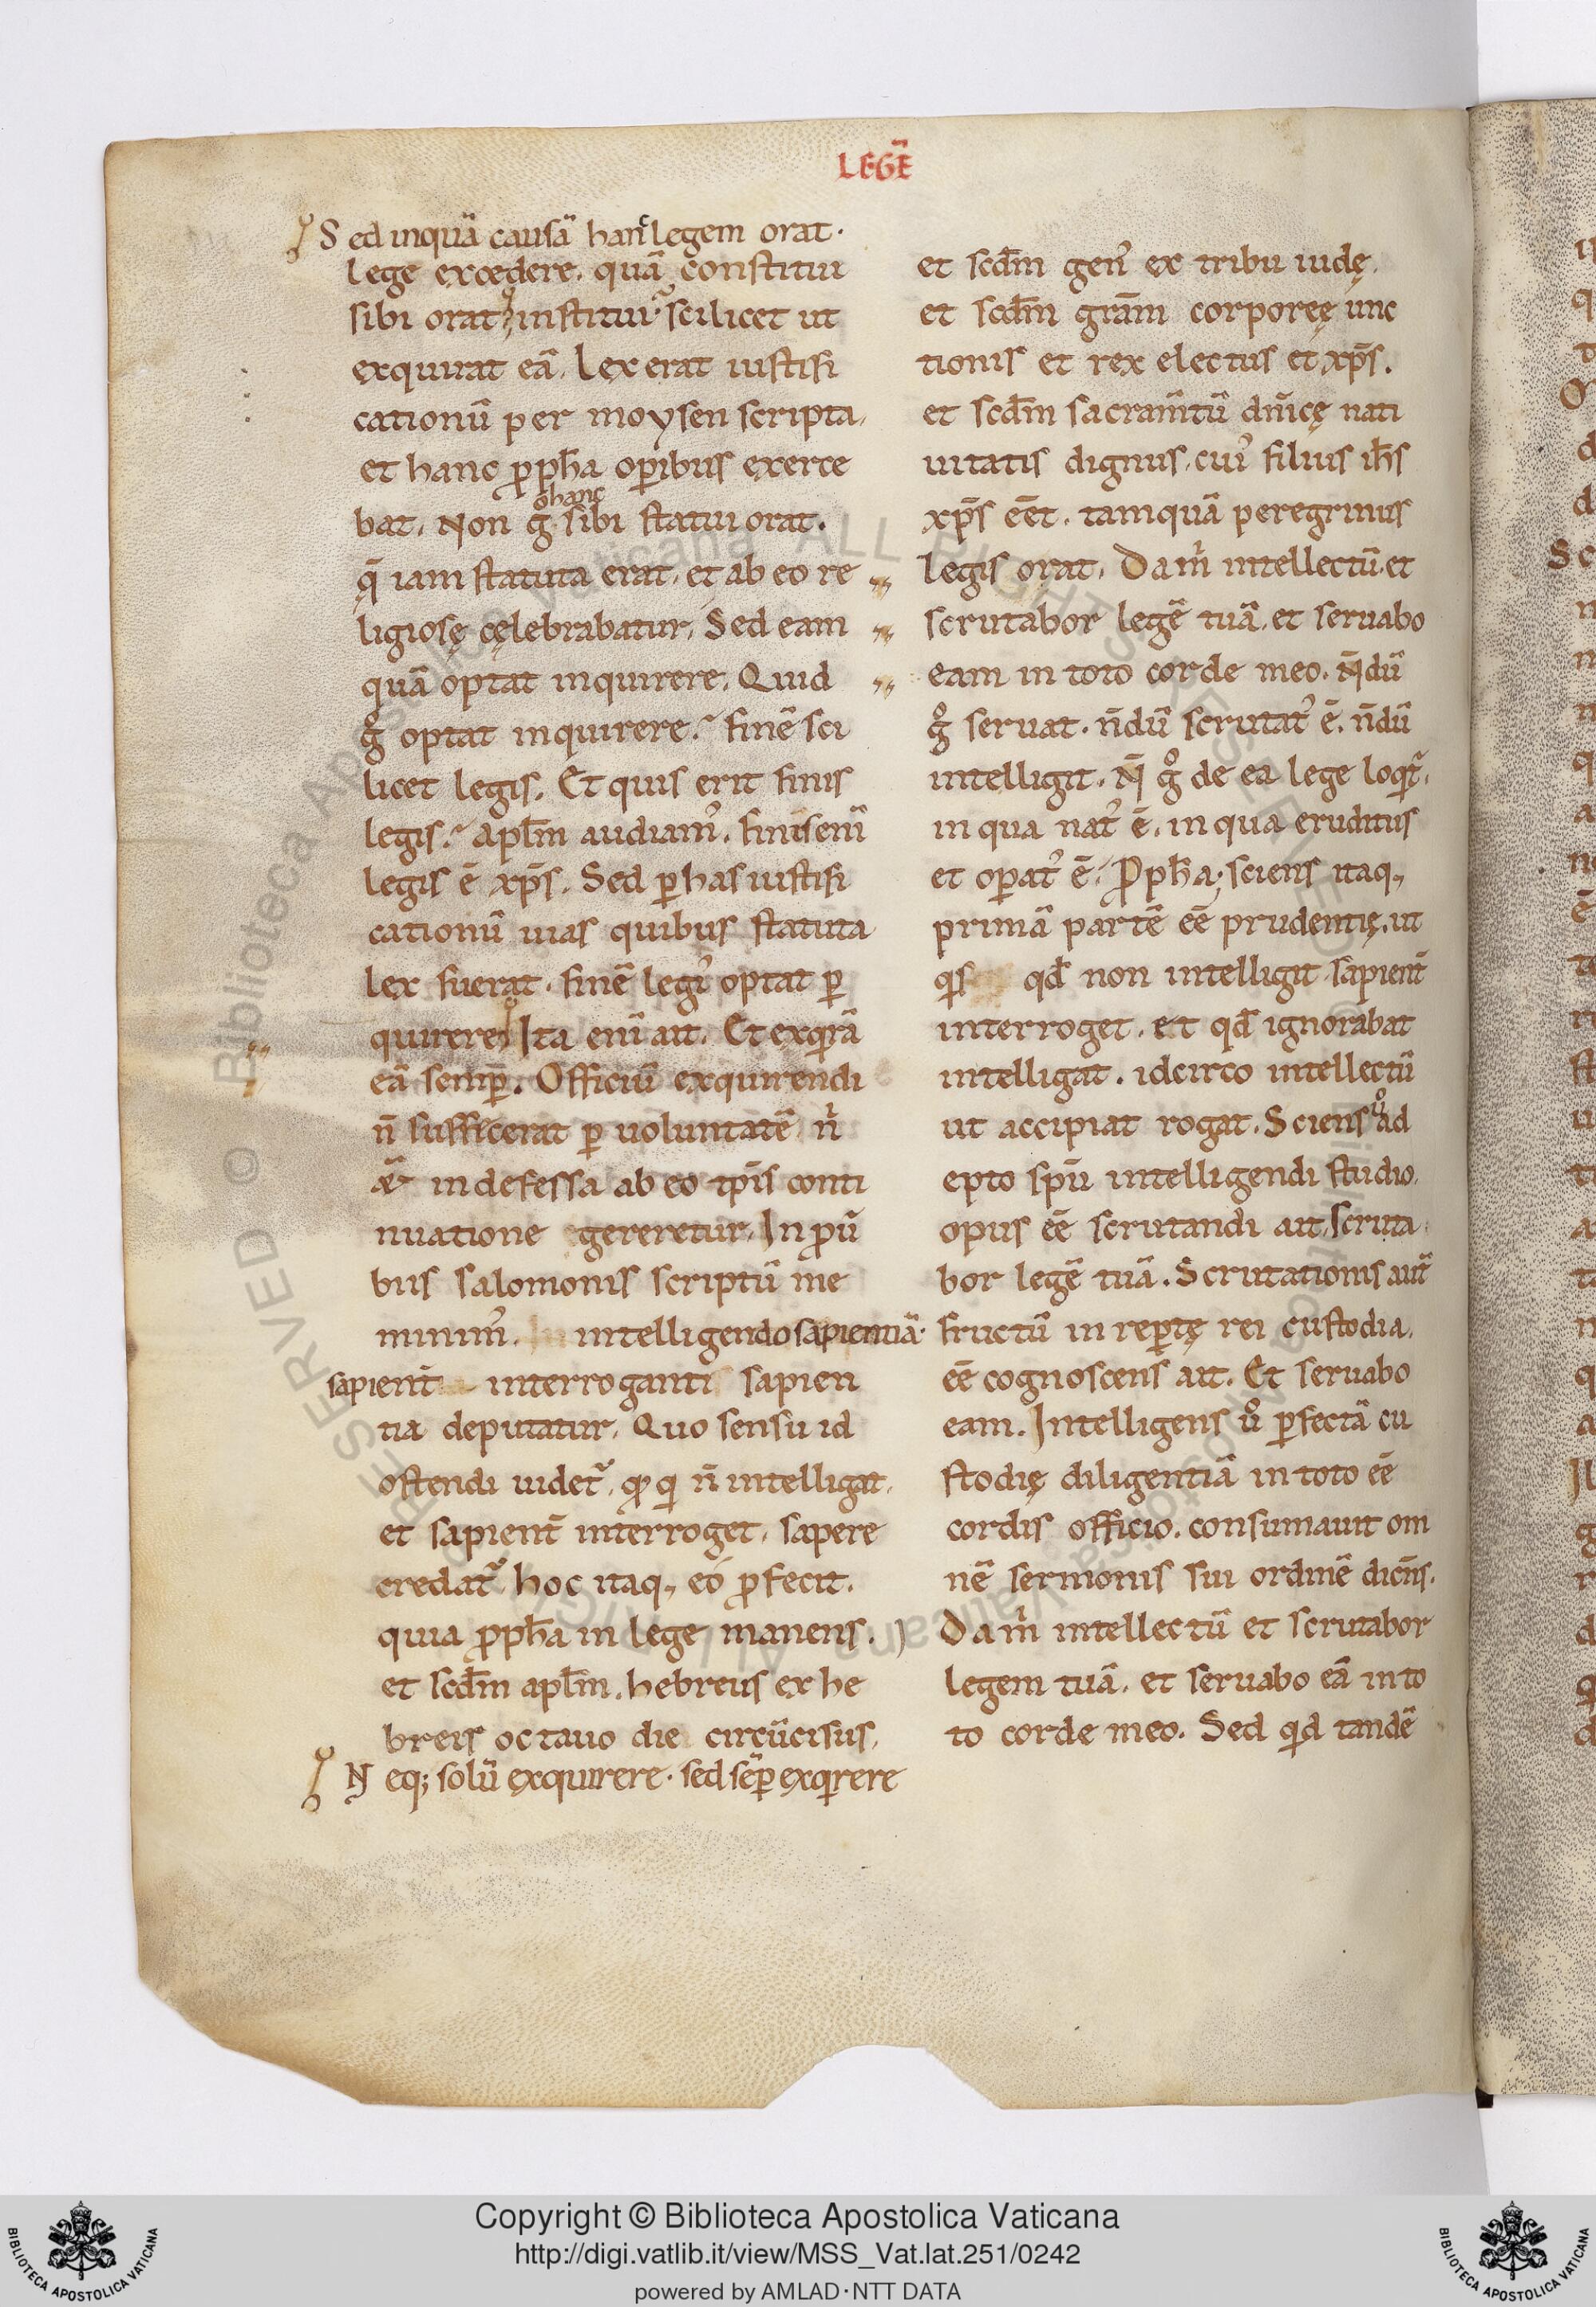 LEGĒ
Sed inquā causā hanc legem orat.
lege excedere. quā constitui
sibi orat institui. scilicet ut
exquirat eā. Lex erat iustifi
cationū per moysen scripta,
et hanc ꝓph̄a oꝑibus exerce
bat. Non g̊ hanc sibi statui orat.
q̄ iam statuta erat, et ab eo re
ligiosę cęlebrabatur, Sed eam
quā optat inquirere. Quid
g̊ optat inquirere? finē sci
licet legis. Et quis erit finis
legis? apl̄m audiam᾽. finis enī
legis ē xp̄s. Sed ꝑ has iustifi
cationū uias quibus statuta
lex fuerat. finē legi᾽ optat ꝑ
quirere Ita enī ait. Et exqͥrā
eā semꝑ. Officiū exquirendi
n̄ suffecerat ꝑ uoluntatē, nͥ
indefessa ab eo tp̄is conti
nuatione gereretur. In ꝓu̅
bus salomonis scriptū me
minim᾽. intelligendo sapientiā.
sapient̄ interroganti sapien
tia deputatur. Quo sensu id
ostendi uidet᷑, qͥ n̄ intelligat,
et sapient̄ interroget, sapere
credat᷑ hoc itaq, eo ꝓfecit.
quia ꝓph̄a in lege manens.
et scd̄m apl̄m. hebreus ex he
breis octauo die circūcisus,
Neq; solū exquirere. sed sēꝑ exqͥrere
et scd̄m gen᾽ ex tribu iudę,
et scd̄m grām corporeę unc
tionis et rex electus et xp̄s.
et scd̄m sacram̄tū dn̄icę nati
uitatis dignus, cui᾽ filius ih̄s
xp̄s eēt. tamquā peregrinus
legis orat, Da mͥ intellectū, et
scrutabor legē tuā, et seruabo
eam in toto corde meo. N̄dū
g̊ seruat. n̄dū scrutat᾽ ē. n̄dū
intelligit. N̄ g̊ de ea lege loqͥt᷑,
in qua nat᾽ ē, in qua eruditus
et oꝑat᾽ ē. Ꝓph̄a; sciens itaq,
primā partē eē prudentię, ut
qͥs qd̄ non intelligit sapient̄
interroget. et qd̄ ignorabat
intelligat. idcirco intellectū
ut accipiat rogat. Sciens ů ad
epto sp̄u intelligendi studio,
opus eē scrutandi ait, scruta
bor legē tuā. Scrutationis aut̄
fructū in reꝑtę rei custodia.
eē cognoscens ait. Et seruabo
eam. Intelligens ů ꝑfectā cu
stodię diligentiā in toto eē
cordis officio. consumauit om
nē sermonis sui ordinē dicn̄s.
Da mͥ intellectū et scrutabor
legem tuā, et seruabo eā in to
to corde meo. Sed qͥd tandē
Copyright © Biblioteca Apostolica Vaticana
http://digi.vatlib.it/view/MSS_Vat.lat.251/0242
powered by AMLAD·NTT DATA
BIBLIOTECA APOSTOLICA VATICANA
BIBLIOTECA APOSTOLICA VATICANA